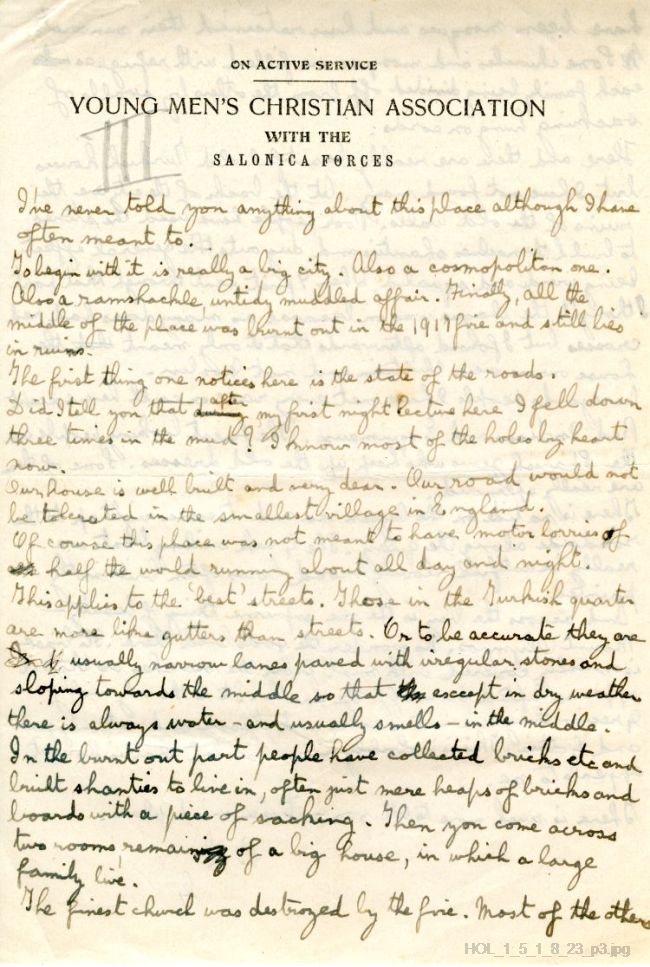 ON ACTIVE SERVICE
YOUNG MEN'S CHRISTIAN ASSOCIATION
WITH THE
SALONICA FORCES
III
I've never told you anything about this place although I have
often meant to.
To begin with it is really a big city. Also a cosmopolitan one.
Also a ramshackle, untidy muddled affair. Finally, all the
middle of the place was burnt out in the 1917 fire and still lies
in ruins.
The first thing one notices here is the state of the roads.
Did I tell you that during after my first night lecture here I fell down
three times in the mud? I know most of the holes by heart
now.
Our house is well built and very dear. Our road would not
be tolerated in the smallest village in England.
Of course this place was not meant to have motor lorries of
half the world running about all day and night.
This applies to the 'best' streets. Those in the Turkish quarter
are more like gutters than streets. Or to be accurate they are
usually narrow lanes paved with irregular stones and
sloping towards the middle so that except in dry weather
there is always water – and usually smells – in the middle.
In the burnt out part people have collected bricks etc and
built shanties to live in, often just mere heaps of bricks and
boards with a piece of sacking. Then you come across
two rooms remaining of a big house, in which a large
family live.
The finest church was destroyed by the fire. Most of the others
HOL_1_5_1_8_23_p3.jpg